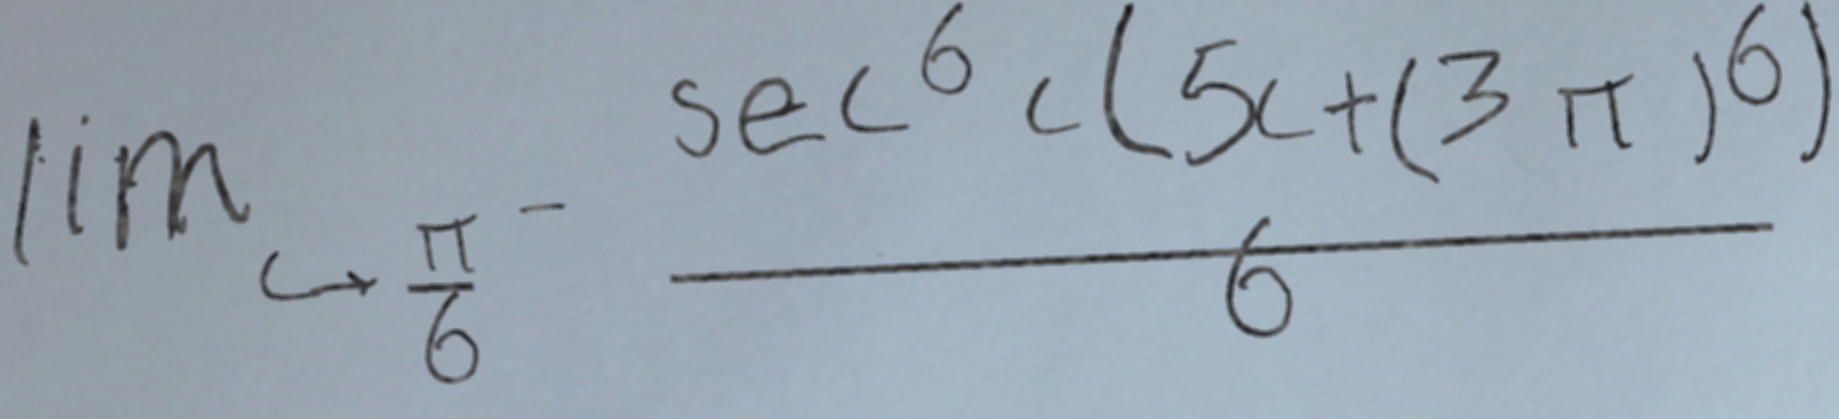 \lim_{c \to \frac{\pi}{6}^-} \frac{\sec^6 c (5c + (3\pi)^6)}{6}